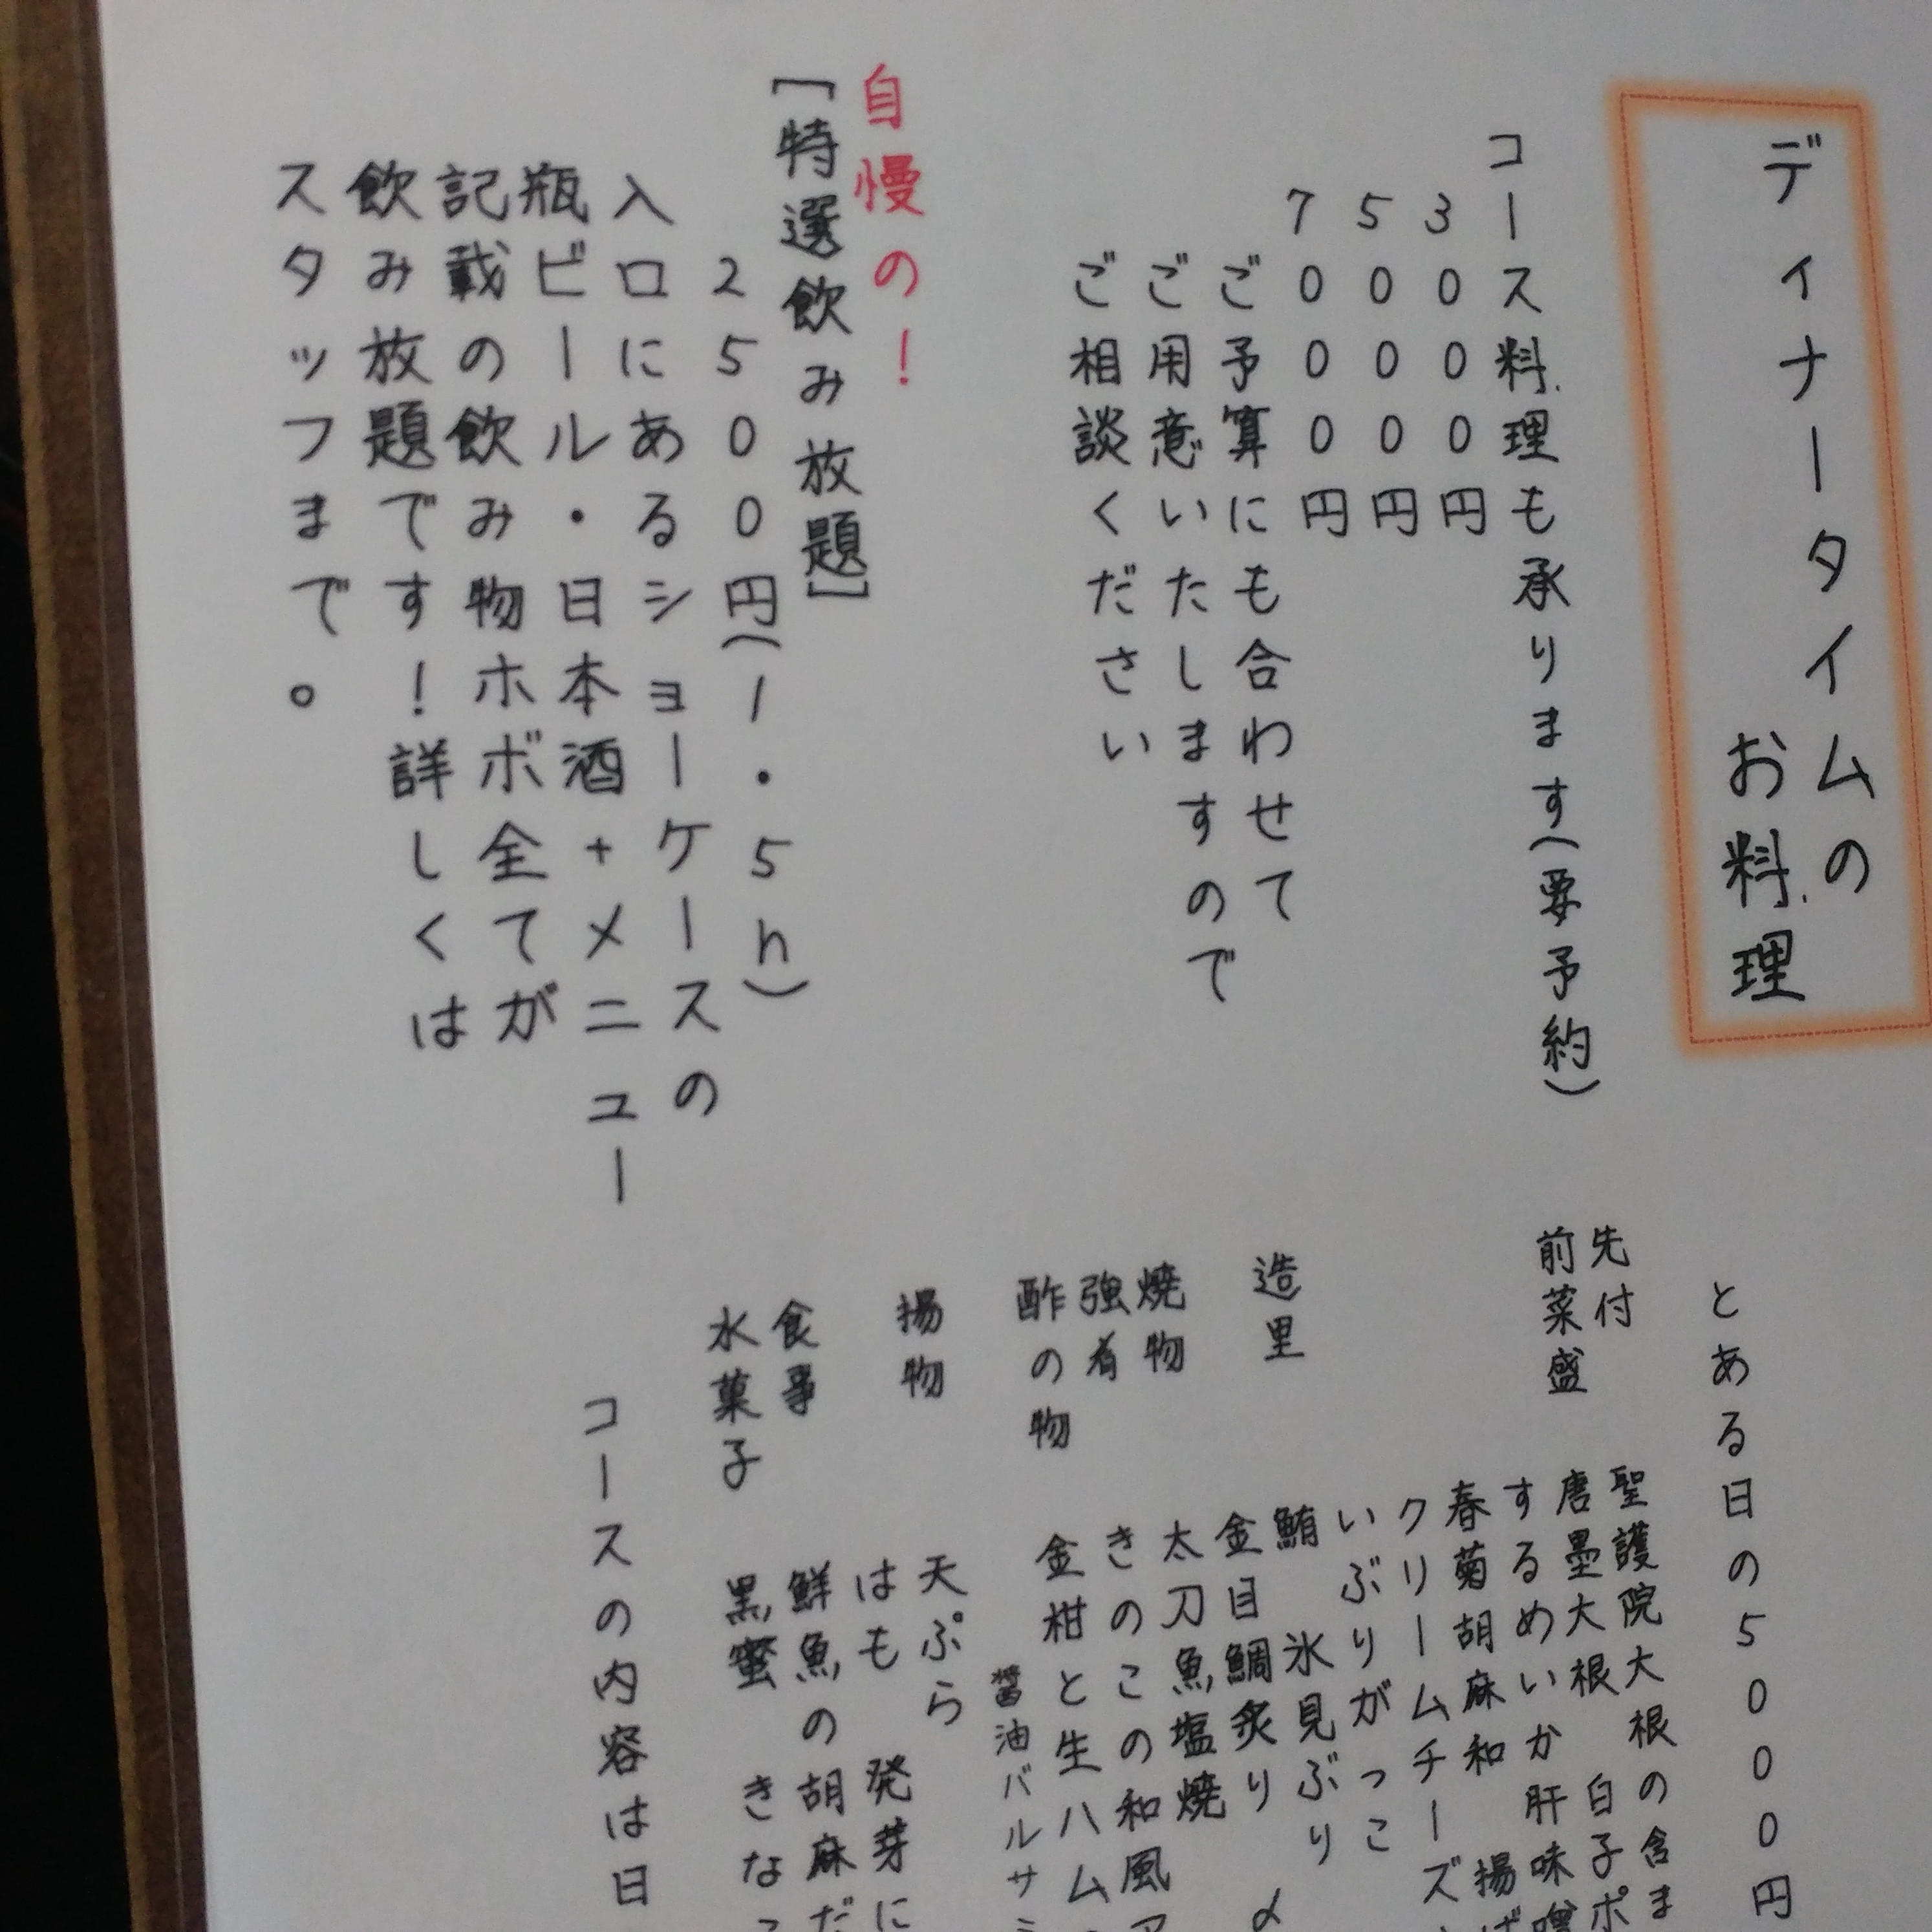 ディナータイムの
お料理
コース料理も承ります(要予約)
3000円
5000円
7000円
ご予算にも合わせて
ご用意いたしますので
ご相談ください
自慢の!
[特選飲み放題]
2500円(1.5h)
入口にあるショーケースの
瓶ビール・日本酒+メニュー
記載の飲み物ホボ全てが
飲み放題です!詳しくは
スタッフまで。
とある日の5000円
先付 聖護院大根の含ま
前菜盛 唐墨大根 白子ポ
するめいか肝味噌
春菊胡麻和 揚げ
クリームチーズ
いぶりがっこ
造里 鮪 氷見ぶり 〆
金目鯛炙り
焼物 太刀魚塩焼
強肴 きのこの和風ア
酢の物 金柑と生ハム
醤油バルサミ
揚物 天ぷら
はも 発芽に
食事 鮮魚の胡麻だ
水菓子 黒蜜 きなこ
コースの内容は日